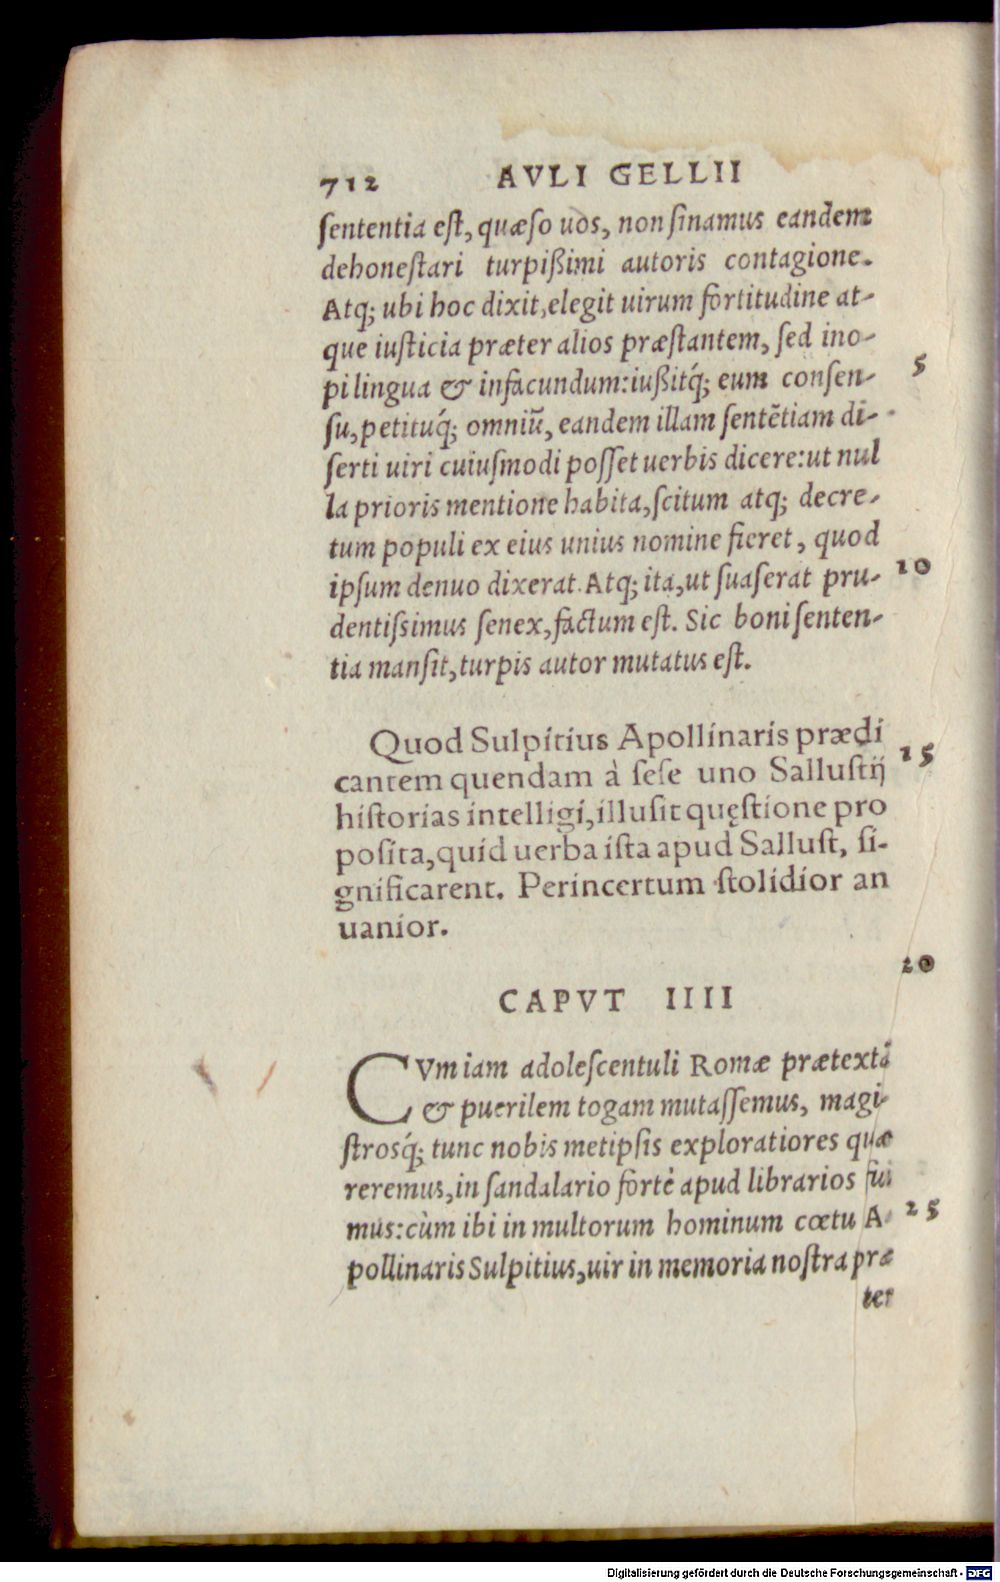 712 AVLI GELLII
sententia est, quæso uos, non sinamus eandem
dehonestari turpißimi autoris contagione.
Atq; ubi hoc dixit, elegit uirum fortitudine at-
que iusticia præter alios præstantem, sed ino-
5
pi lingua & infacundum: iußitq́; eum consen-
su, petituq́; omniū, eandem illam sentētiam di-
serti uiri cuiusmodi posset uerbis dicere: ut nul
la prioris mentione habita, scitum atq; decre-
tum populi ex eius unius nomine fieret, quod
10
ipsum denuo dixerat. Atq; ita, ut suaserat pru-
dentissimus senex, factum est. Sic boni senten-
tia mansit, turpis autor mutatus est.
Quod Sulpitius Apollinaris prædi
15
cantem quendam à sese uno Sallustij
historias intelligi, illusit quęstione pro
posita, quid uerba ista apud Sallust. si-
gnificarent. Perincertum stolidior an
uanior.
20
CAPVT IIII
CVm iam adolescentuli Romæ prætextā
& puerilem togam mutassemus, magi-
strosq́; tunc nobis metipsis exploratiores quæ
reremus, in sandalario fortè apud librarios fui
25
mus: cùm ibi in multorum hominum cœtu A-
pollinaris Sulpitius, uir in memoria nostra præ
ter
Digitalisierung gefördert durch die Deutsche Forschungsgemeinschaft - DFG